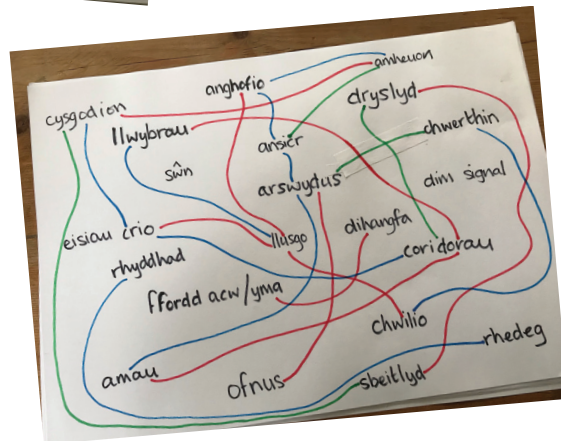 anghofio
amheuon
cysgodion
dryslyd
llwybrau
ansicr
chwerthin
sŵn
arswydus
dim signal
eisiau crio
llusgo
dihangfa
coridorau
rhyddhad
ffordd acw/yma
chwilio
rhedeg
amau
ofnus
sbeitlyd